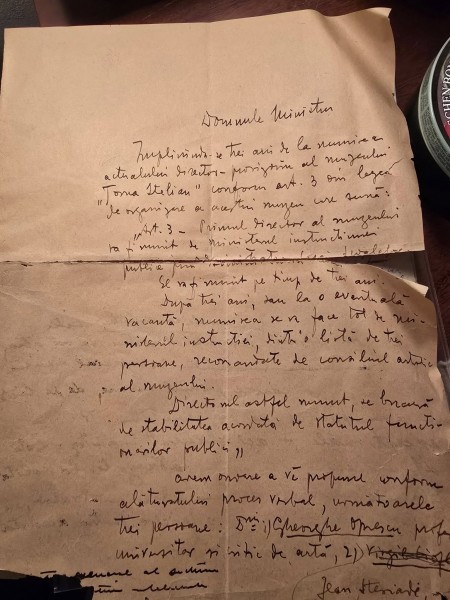 Domnule Ministru
Împlinindu-se trei ani de la numirea
actualului director-provizoriu al muzeului
"Toma Stelian" conform art. 3 din legea
de organizare a acestui muzeu care sună:
"Art. 3 – Primul director al muzeului
va fi numit de ministerul instrucțiunei
publice
Se va fi numit pe timp de trei ani.
După trei ani, sau la o eventuală
vacanță, numirea se va face tot de mi-
nisterul instrucției, dintr'o listă de trei
persoane, recomandate de consiliul artistic
al muzeului.
Directorul astfel numit, se bucură
de stabilitatea acordată de statutul funcți-
onarilor publici"
avem onoare a vă propune conform
alăturatului proces verbal, următoarele
trei persoane: D-nii 1) Gheorghe Oprescu prof.
universitar și critic de artă, 2)
Jean Steriadi,
CHEN BO